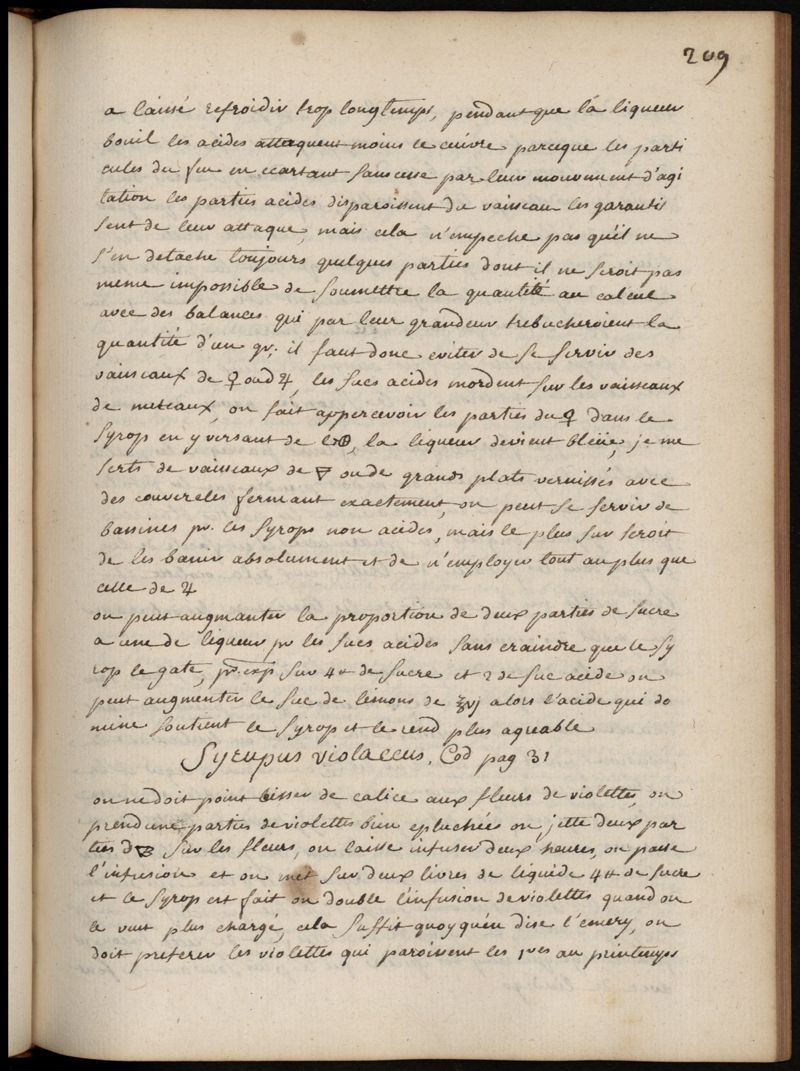 209
a laissé refroidir trop longtemps, pendant que la liqueur
bouil les acides attaquent moins le cuivre parceque les parti
cules du feu en ecartant sans cesse par leur mouvement d'agi
tation les parties acides disparoissent du vaisseau les garantis
sent de leur attaque, mais cela n'empeche pas qu'il ne
s'en detache toujours quelques parties dont il ne seroit pas
meme impossible de soumettre la quantité au calcul
avec des balances qui par leur grandeur trebucheroient la
quantité d'un gr; il faut donc eviter de se servir des
vaisseaux de ♀ ou d ♃, les sucs acides mordent sur les vaisseaux
de metaux, on fait appercevoir les parties du ♀ dans le
syrop en y versant de l', la liqueur devient bleüe, je me
serts de vaisseaux de 🜃 ou de grands plats vernissés avec
des couvercles fermant exactement, on peut se servir de
bassines pr. les syrops non acides, mais le plus sur seroit
de les banir absolument et de n'employer tout au plus que
celle de ♃
on peut augmanter la proportion de deux parties de sucre
a une de liqueur pr les sucs acides sans craindre que le sy
rop se gate, pr. exp sur 4 ℔ de sucre et 2 de suc acide on
peut augmenter le suc de limons de ℥vj alors l'acide qui do
mine soutient le syrop et le rend plus agreable
Syrupus violaceus, Cod pag 31
on ne doit point laisser de calice aux fleurs de violettes, on
prend une parties de violettes bien epluchées on jette deux par
ties d' sur les fleurs, on laisse infuser deux heures, on passe
l'infusion et on met sur deux livres de liquide 4 ℔ de sucre
et le syrop est fait on double l'infusion de violettes quand on
le veut plus chargé, cela suffit quoy qu'en dise l'emery, on
doit preferer les violettes qui paroissent les 1res au printemps